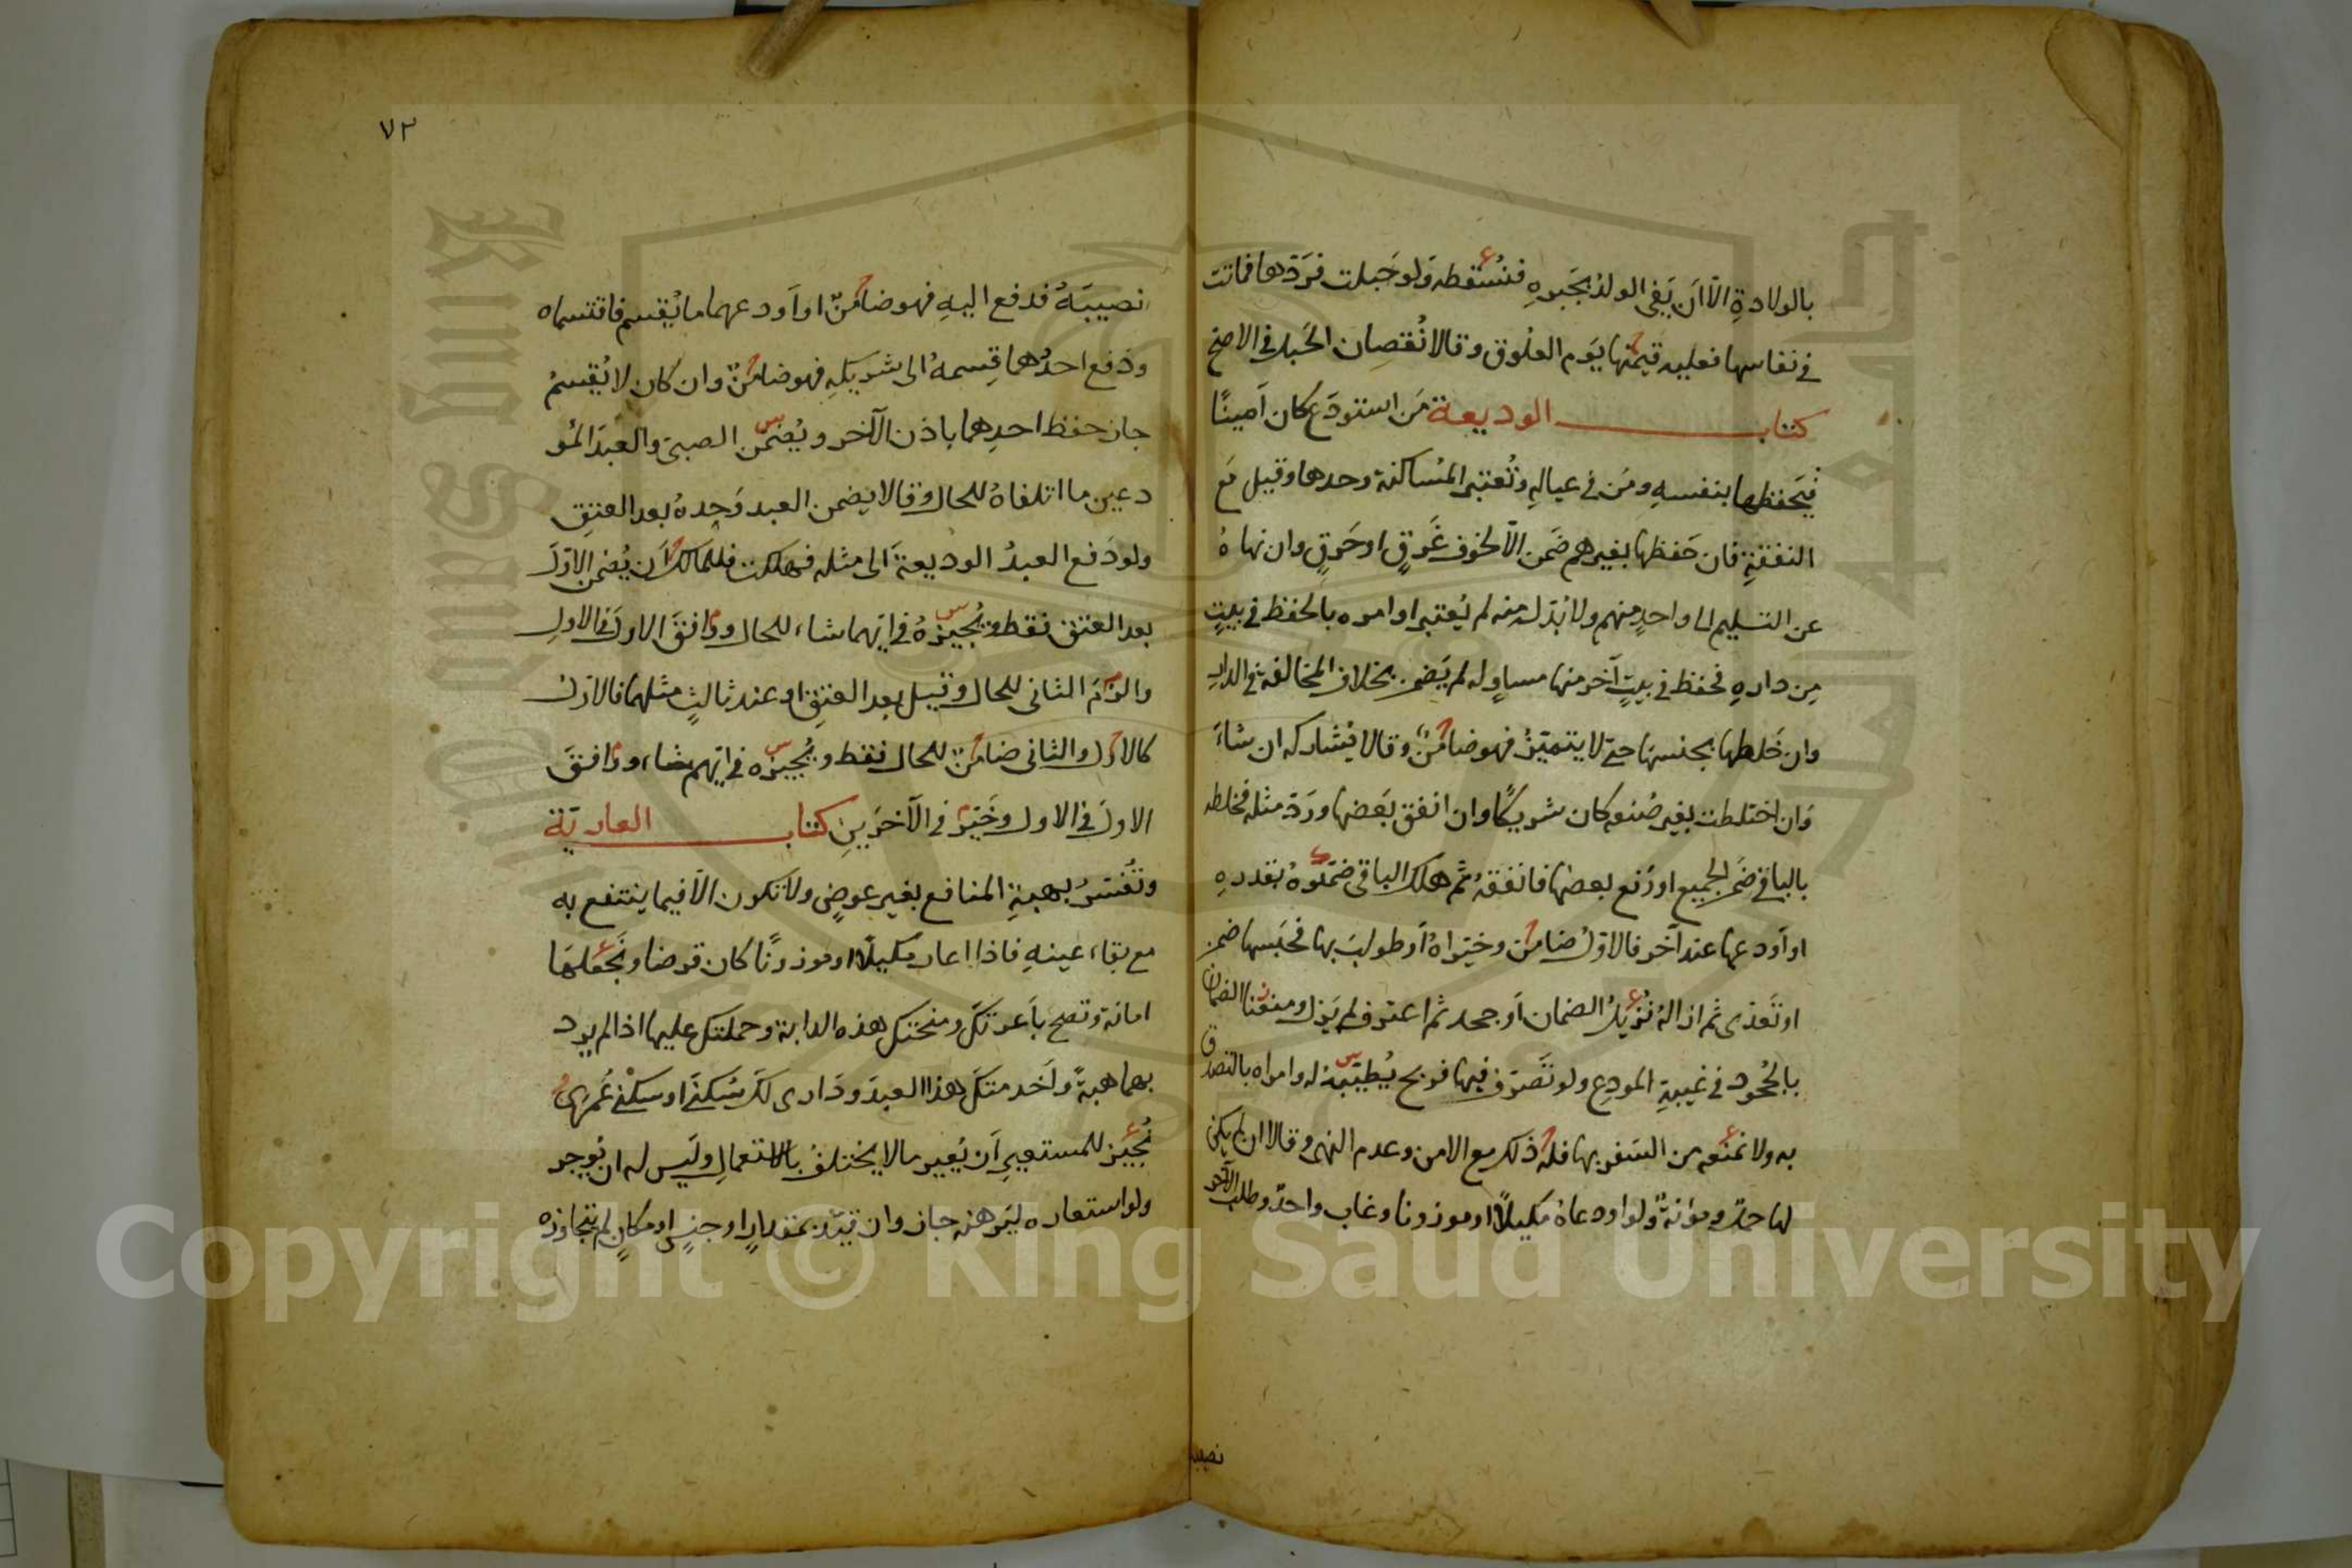 بالولادةِ الّا اَن يَفِىَ الولدُ بجَبرهِ فنُسْقطه وَلو حَبلت فرَدّها فماتت
في نفاسها فعليه قيمتها يَوم العلُوق وقالا نُقصان الحَبل في الاصح
كتاب الوديعة مَن استودَع كان اَمينًا
فيَحفظها بنفسهِ ومَن في عيالهِ وتُعتبر المُساكنة وحدها وقيل مَع
النفقةِ فان حَفظها بغيرهم ضَمن الّا لخوف غَرقٍ او حَرقٍ وان نهاهُ
عن التسليم الى واحدٍ منهم ولا بُدّ له منه لم يُعتبر او امره بالحفظ في بيتٍ
مِن دارهِ فحفظ في بيتٍ آخر منها مساوٍ له لم يَضمن بخلاف المخالفة في الدارِ
وان خَلطها بجنسها حتى لا يتميّزُ فهو ضامنٌ وقالا يُشاركه ان شاءَ
وَان اختلطت بغير صُنعه كان شريكًا وان انفق بَعضها ورَدّ مثله فخلطه
بالباقي ضمَن الجميع او رَفع بعضها فانفقهُ ثم هلك الباقي ضمّنوهُ بقدرهِ
او اَودعها عند آخر فالاوّلُ ضامن وخيّراهُ اَو طولبَ بها فحبَسها ضمن
او تَعدّى ثم ازالهُ نُزيلُ الضمان اَو جحد ثم اعترف لم يَزل ومنعنا الضمان
بالجُحود في غيبةِ المودِع ولو تَصَرّف فيها فربح يُطيّبهُ له وامراه بالتصدق
به ولا نمنعه من السَفر بها فلهُ ذلك مع الامن وعدم النهى وقالا ان لم يكن
لها حمل ومؤنةٌ ولو اودعاهُ مكيلًا او موزونا وغاب واحدٌ وطلب الآخر
نصيبه
٧٣
نصيبَهُ فدفع اليهِ فهو ضامنٌ او اَودعهما ما يُقسم فاقتسماه
ودَفع احدُهما قِسمهُ الى شريكهِ فهو ضامنٌ وان كان لا يُقسمُ
جاز حفظ احدِهما باذن الآخر ويُضمّن الصبىّ والعبدَ المُو
دعين ما اتلفاهُ للحال وقالا يضمن العبد وَحدهُ بعد العتقِ
ولو دَفع العبدُ الوديعةَ الى مثله فهلكت فللمالك اَن يُضمن الاوّلَ
بعد العتق فقط ويُجيزهُ في ايّهما شاء للحال ووافقَ الاولَ في الاولِ
والزمَ الثانى للحال وقيل بعد العتقِ او عند ثالثٍ مثلهما فالاوّلُ
كالاوّل والثانى ضامنٌ للحال فقط ويُجيزه في ايّهم شاء ووافقَ
الاولَ في الاول وخَيّرَ في الآخرَينِ كتاب العاريّة
وتُفسّرُ بهبةِ المنافع بغير عوضٍ ولا تكون الّا فيما ينتفع به
مع بقاء عينهِ فاذا اعار مكيلًا او موزونًا كان قرضا ونَجعلهَا
امانة وتصح باَعرتكَ ومنحتك هذه الدابة وحملتك عليها اذا لم يرد
بهما هبةً واَخدمتكَ هذا العبدَ ودَارى لكَ سُكنَى او سكنى عُمرىً
نُجيز للمستعيرِ اَن يُعير ما لا يختلفُ بالاستعمالِ وليَس له ان يُوجر
ولو استعاره ليَرهنه جاز وان قيّد بمقدارٍ او جنسٍ او مكانٍ لم يتجاوزه
Copyright © King Saud University